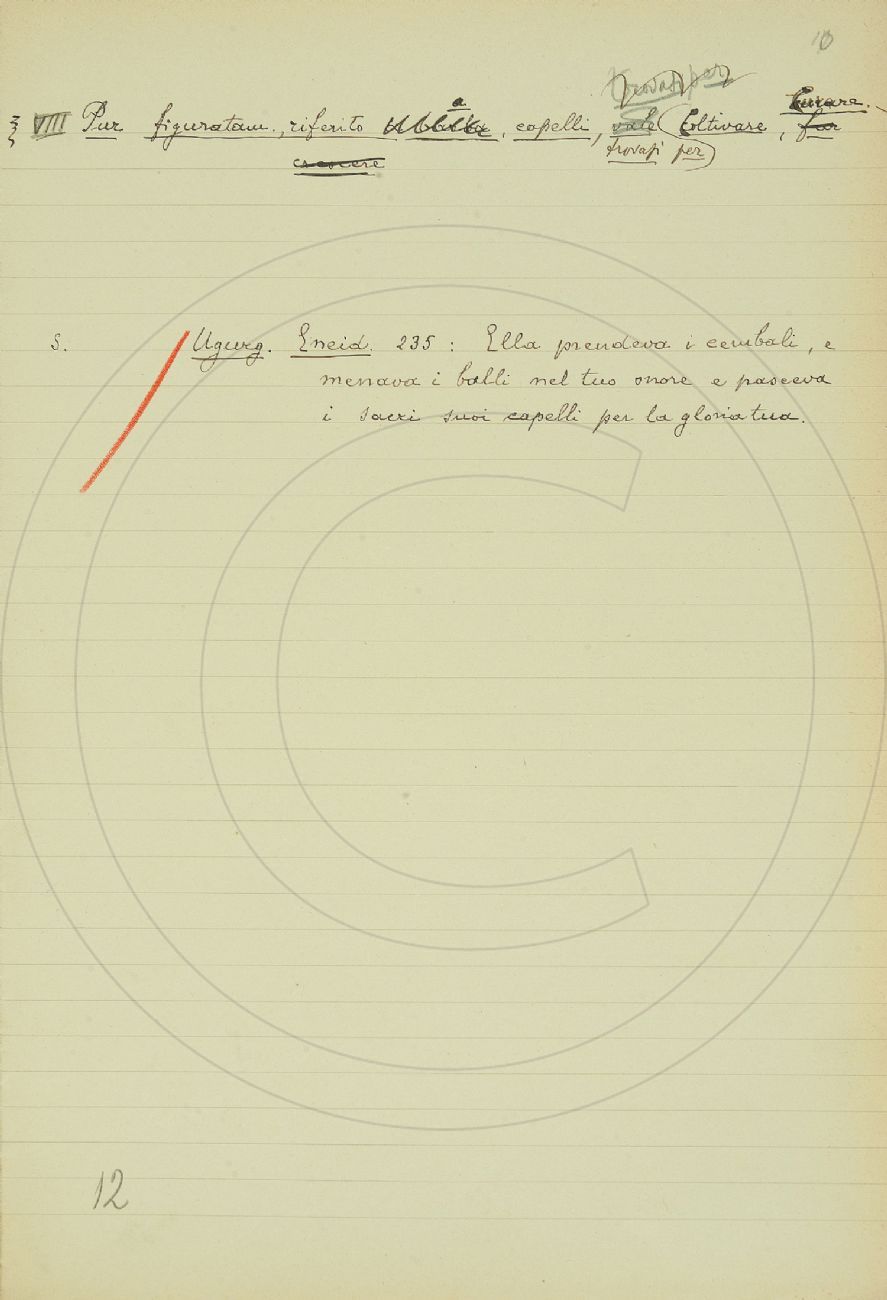 10
trovasi per
a Curare.
§ VIII Pur figuratam., riferito, capelli, vale Coltivare, far
crescere trovasi per
S. Ugurg. Eneid. 235: Ella prendeva i cembali, e
menava i balli nel tuo onore e pasceva
i sacri suoi capelli per la gloria tua.
12